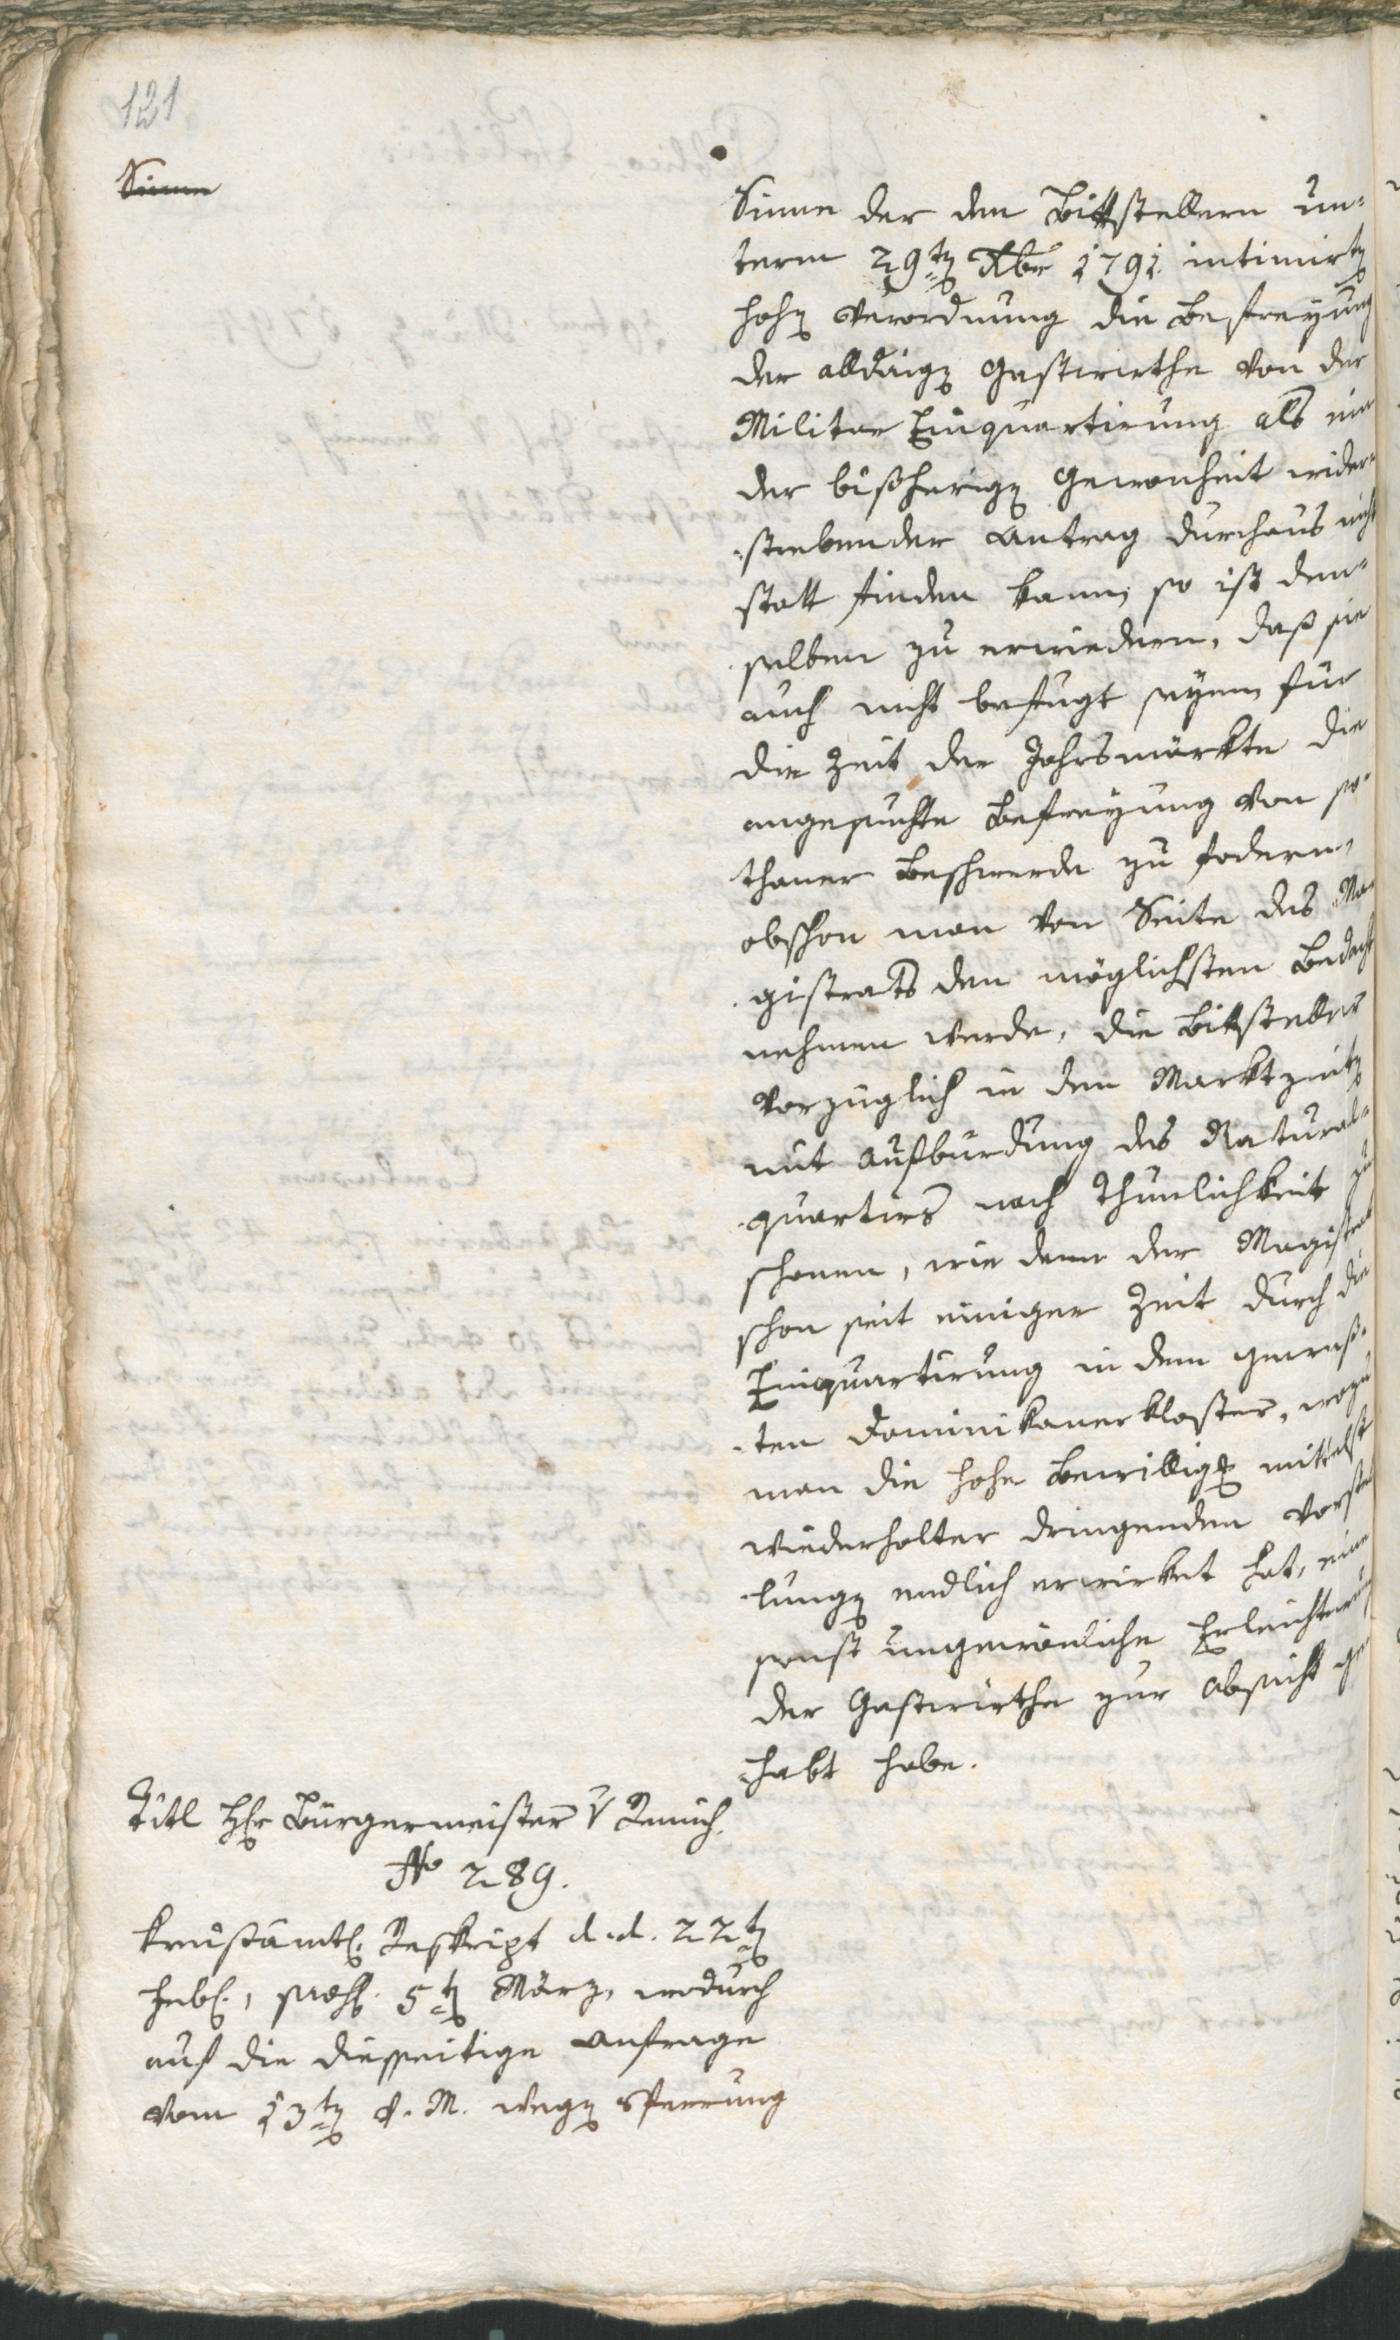 121
Sinne
Sinne der den Bittstellern un-
term 29ten Xber 1791. intimirten
hohen Verordnung die Befreyung
der alldaigen Gastwirthe von der
Militar Einquartirung als ein
der bißherigen Gewonheit wider-
strebender Antrag durchaus nicht
statt finden kann, so ist den-
selben zu erwiedern, daß sie
auch nicht befugt seyen, für
die Zeit der Jahrsmärkte die
angesuchte Befreyung von so-
thaner Beschwerde zu fodern,
obschon man von Seite des Ma-
gistrats den möglichsten Bedacht
nehmen werde, die Bittsteller
vorzüglich in den Marktzeiten
mit Aufbürdung des Natural-
quartirs nach Thunlichkeit zu
schonen, wie denn der Magistrat
schon seit einiger Zeit durch die
Einquartirung in dem gewes-
ten Dominikanerkloster, wozu
man die hohe Bewilligung mittelst
wiederholter dringenden Vorstel-
lungen endlich erwirket hat, eine
sonst ungewönliche Erleichterung
der Gastwirthe zur Absicht ge-
habt habe.
Titl Hr Bürgermeister v
No 289.
Kreisämtl. Reskript d. d. 22ten
Febr., 5ten März, wodurch
auf die diesseitige Anfrage
vom 13ten v. M. wegen Sperrung